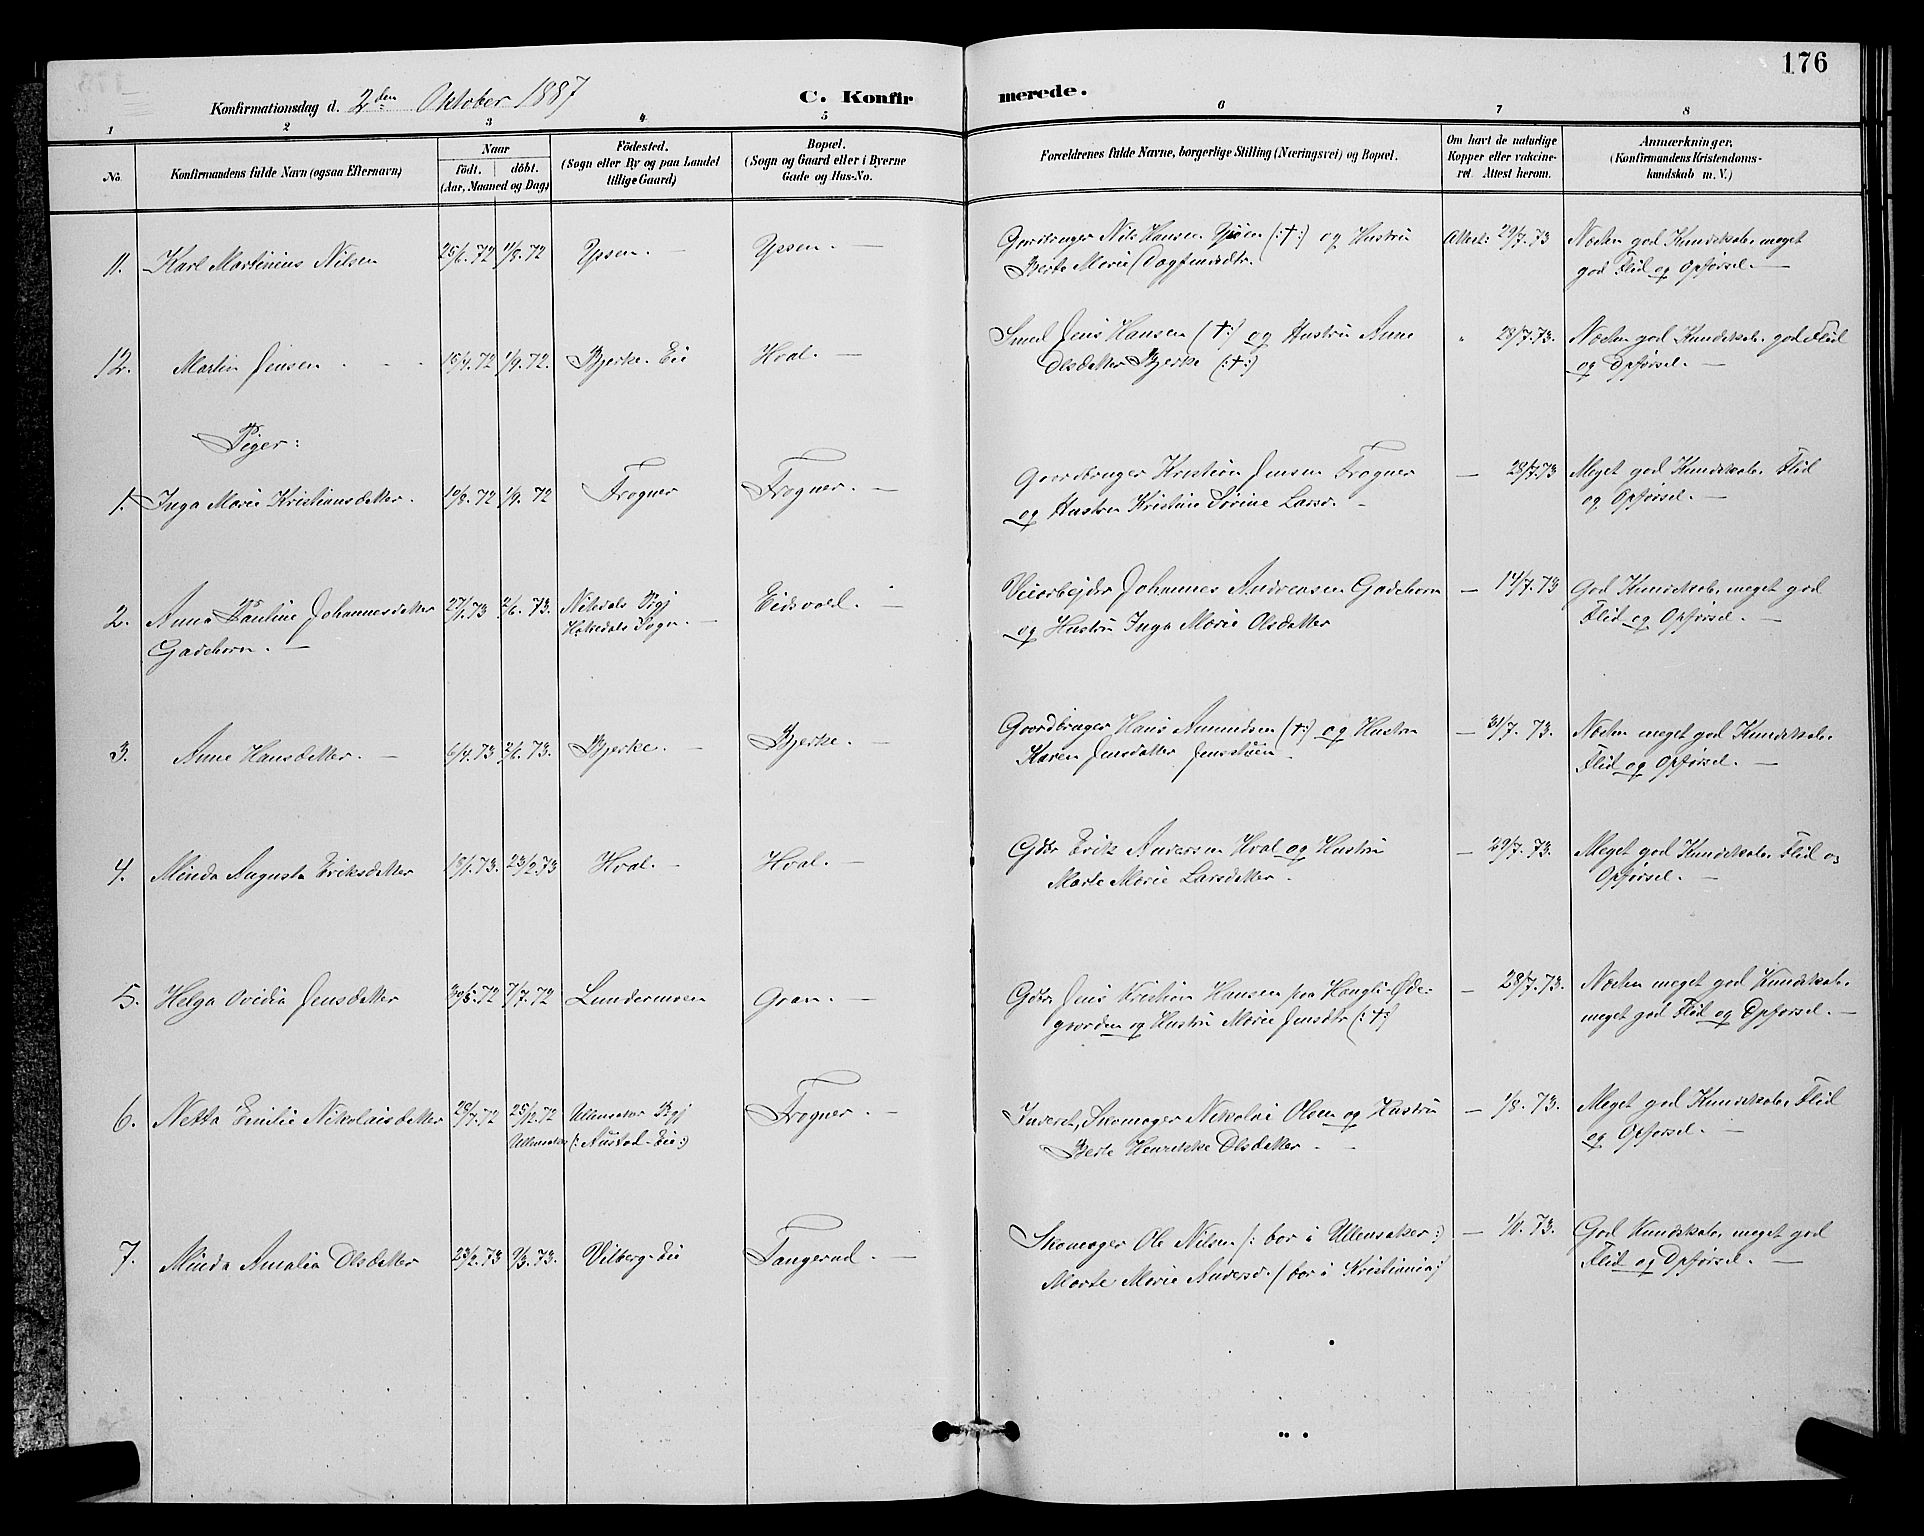 176
Konfirmationsdag d. 2den Oktober 1887 C. Konfirmerede.
1 2 3 4 5 6 7 8
No. Konfirmandens fulde Navn (ogsaa Efternavn) Naar födt. döbt. (Aar, Maaned og Dag) Födested. (Sogn eller By og paa Landet tillige Gaard) Bopæl. (Sogn og Gaard eller i Byerne Gade og Hus-No. Forældrenes fulde Navne, borgerlige Stilling (Næringsvei) og Bopæl. Om havt de naturlige Kopper eller vakcineret Attest herom. Anmærkninger, (Konfirmandens Kristendomskundskab m. V.)
11. Karl Martinius Nilsen 25/6. 72 4/8. 72 Yssen. Yssen. — Gaardbruger Nils Hansen (:†:) og Hustru Attest: 29/7. 73 Næsten god Kundskab, meget
Berte Marie Dagfinnsdtr. god Flid og Opførsel. —
12. Martin Jensen 15/7. 72 1/9. 72. Bjerke-Eie Hval. — Smed Jens Hansen (†:) og Hustru Anne " 28/7. 73. Næsten god Kundskab, god Flid
Olsdatter Bjerke (:†:) og Opførsel. —
Piger:
1. Inga Marie Kristiansdatter. 10/8. 72 1/9. 72 Frogner Frogner. — Gaardbruger Kristian Jensen Frogner — 28/7. 73 Meget god Kundskab, Flid
og Hustru Kristine Sørine Larsd. — og Opførsel. —
2. Anna Pauline Johannesdatter 27/1. 73 2/6. 73. Nitedals Pgj Eidsvold. — Veiarbejder Johannes Andreasen Gadehorn — 14/7. 73 God Kundskab, meget god
Gadehorn. — Hakedals Sogn. — og Hustru Inga Marie Olsdatter Flid og Opførsel. —
3. Anne Hansdatter. — 6/4. 73 2/6. 73. Bjerke. — Bjerke. — Gaardbruger Hans Amundsen (†:) og Hustru — 31/7. 73. Næsten meget god Kundskab,
Karen Jensdatter Flid og Opførsel. —
4. Minda Augusta Eriksdatter 18/1. 73. 23/2. 73 Hval. — Hval. — Gdbr Erik Andersen Hval og Hustru — 29/7. 73. Meget god Kundskab, Flid og
Marte Marie Larsdatter. Opførsel. —
5. Helga Ovidia Jensdatter 7/7. 72 Lundermoen Gran. — Gdbr Jens Kristian Hansen paa Haugli-Øde- — 28/7. 73. Næsten meget god Kundskab,
gaarden og Hustru Marie Jensdtr (:†:) meget god Flid og Opførsel. —
6. Netta Emilie Nikolaisdatter 28/7. 72 25/12. 72 Ullensaker Pgj Frogner. — Inderst, Skomager Nikolai Olsen og Hustru — 1/8. 73. Meget god Kundskab, Flid
Ullensaker (:Austad-Eie:) Berte Henrikke Olsdatter. — og Opførsel. —
7. Minda Amalia Olsdatter 23/2. 73 9/3. 73. Vilberg-Eie Tangerud. — Skomager Ole Nilsen /: bor i Ullensaker:) — 1/10. 73. God Kundskab, meget god
Marte Marie Andersd. /bor i Kristiania:/ Flid og Opførsel. —